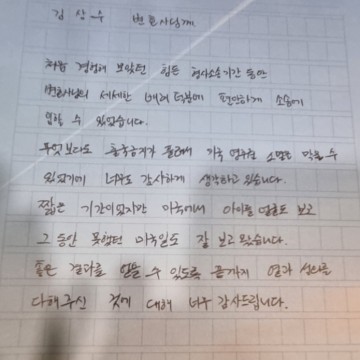 김상수 변호사님께
처음 경험해 보았던 힘든 형사소송기간 동안
변호사님의 세세한 배려 덕분에 편안하게 소송에
임할 수 있었습니다.
무엇보다도 출국금지가 풀려서 미국 영주권 소멸을 막을 수
있었기에 너무도 감사하게 생각하고 있습니다.
짧은 기간이었지만 미국에서 아이들 얼굴도 보고
그 동안 못했던 미국일도 잘 보고 왔습니다.
좋은 결과를 얻을 수 있도록 끝까지 열과 성의를
다해주신 것에 대해 너무 감사드립니다.